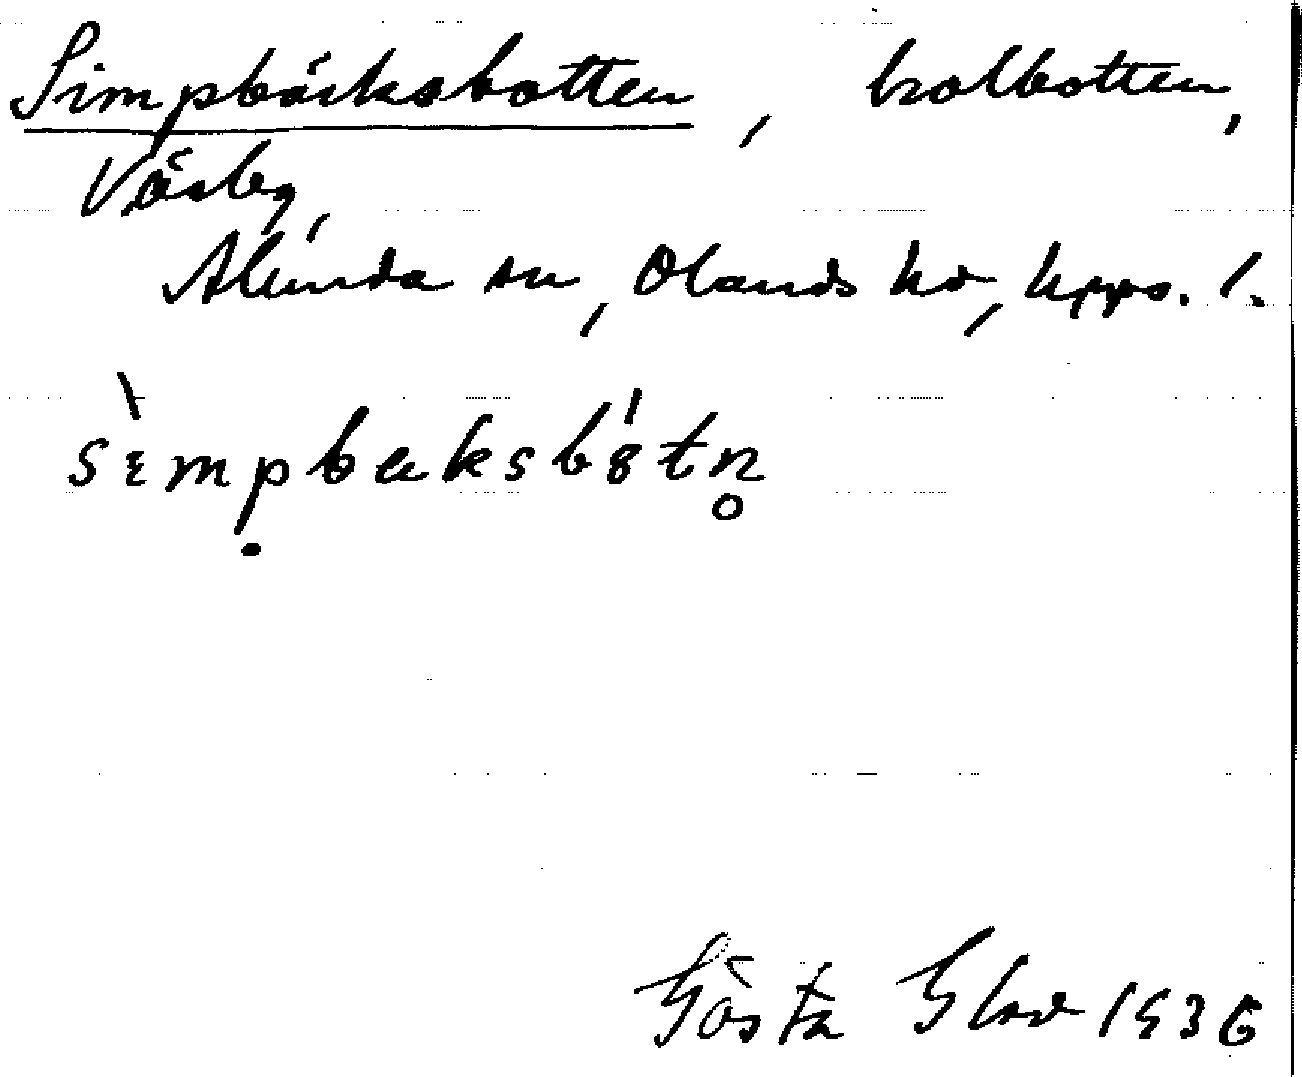 Simpbäcksbotten, kolbotten,
Väsby,
Alunda sn, Olands hd, Upps. l.
sìmpbaksbótn̥
Gösta 1936